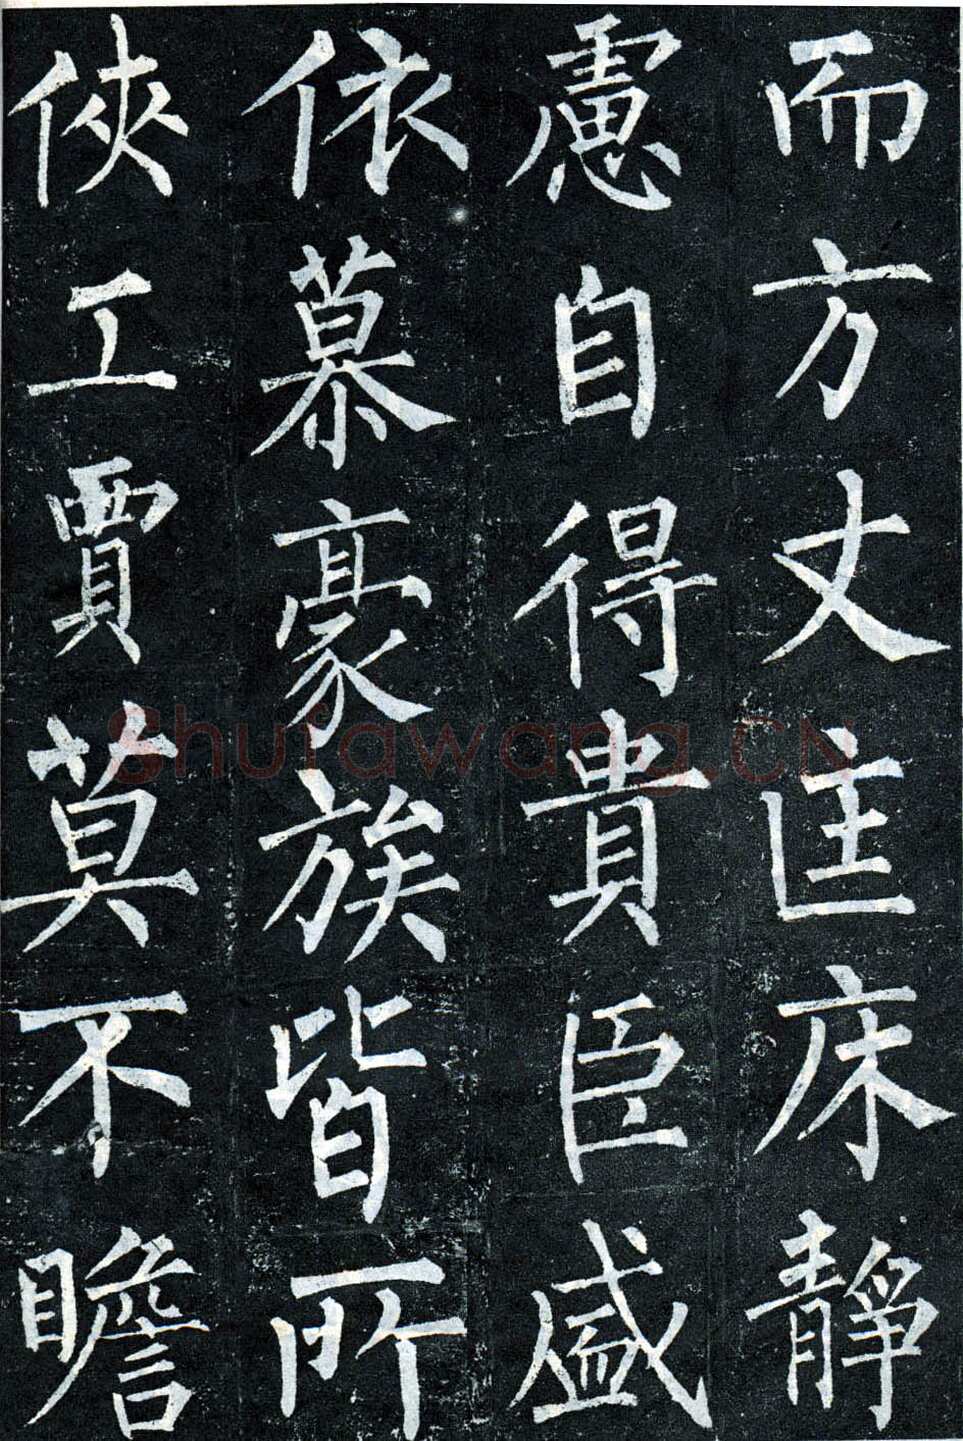 而方丈匡床靜
慮自得貴臣盛
依慕豪族皆所
俠工賈莫不瞻
Shufawang.CN